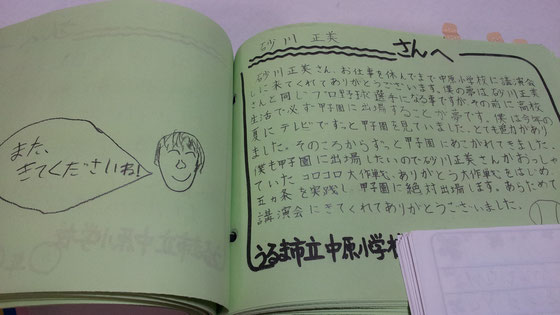 また、
きてくださいね!
砂川 正美
さんへ
砂川正美さん、お仕事を休んでまで中原小学校に講演会
しに来てくれてありがとうございます。僕の夢は砂川正美
さんと同じプロ野球選手になる事ですが、その前に高校
生活で必ず甲子園に出場することが夢です。僕は今年の
夏にテレビでずっと甲子園を見ていました。とても迫力があり
ました。そのころからずっと甲子園にあこがれてきました。
僕も甲子園に出場したいので砂川正美さんがおっし
ていたコロコロ大作戦、ありがとう大作戦をはじめ、
五カ条を実践し、甲子園に絶対出場します。あらためて
講演会にきてくれてありがとうございました。
うるま市立中原小学校